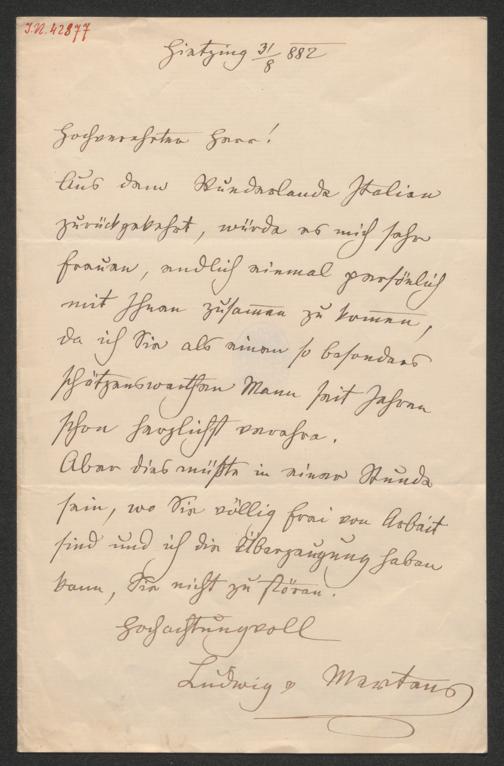 I.N. 42877
Hietzing 31/8 882
Hochverehrter Herr!
Aus dem Wunderlande Italien
zurückgekehrt, würde es mich sehr
freuen, endlich einmal persönlich
mit Ihnen zusammen zu kommen,
da ich Sie als einen so besonders
schätzenswerthen Mann seit Jahren
schon herzlichst verehre.
Aber dies müßte in einer Stunde
sein, wo Sie völlig frei von Arbeit
sind und ich die Überzeugung haben
kann, Sie nicht zu stören.
Hochachtungsvoll
Ludwig v Mertens